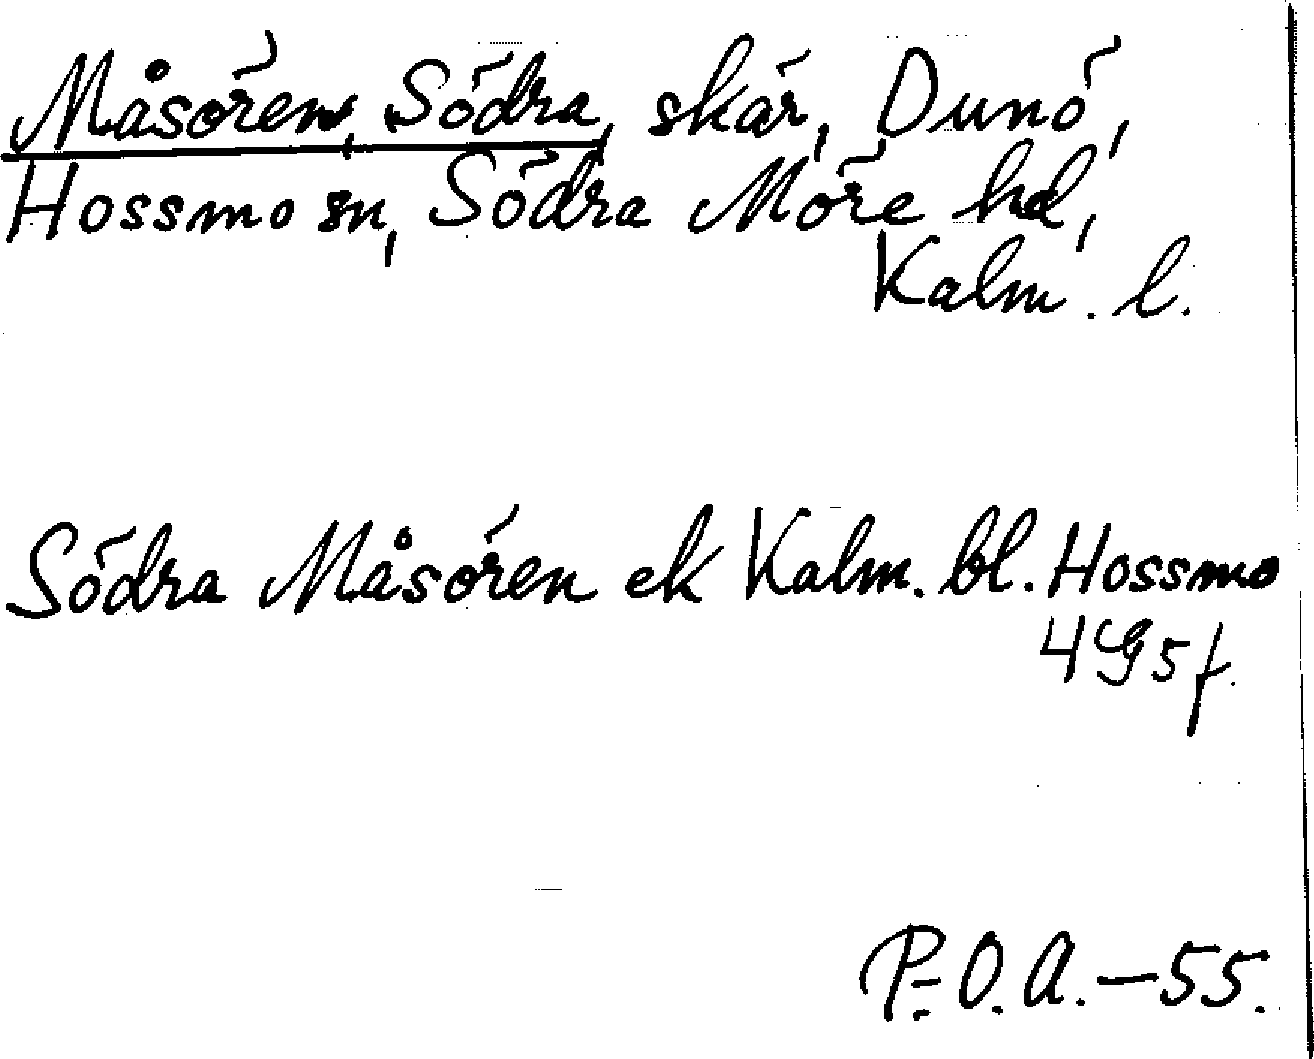 Måsören, Södra, skär, Dunö,
Hossmo sn, Södra Möre hd,
Kalm. l.
Södra Måsören ek Kalm. bl. Hossmo
4G5f.
P.-O.A.—55.